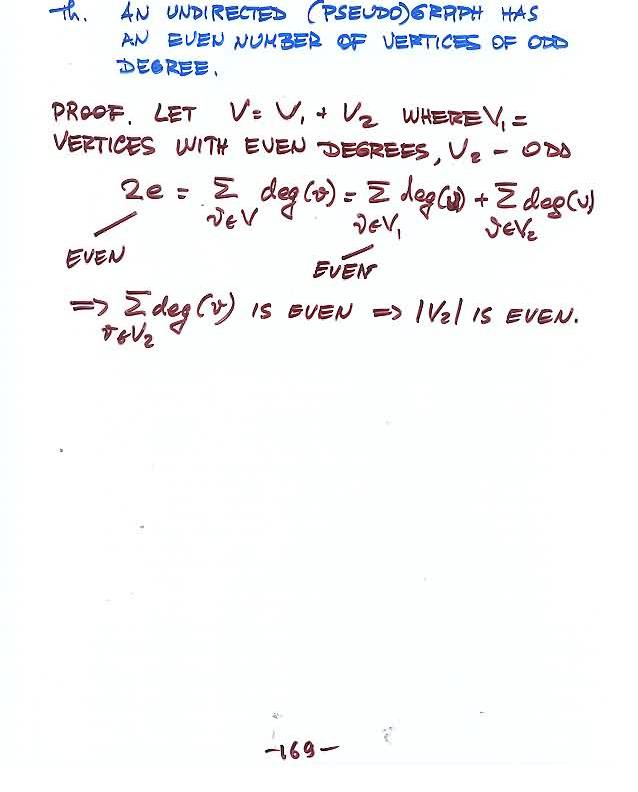 Th. AN UNDIRECTED (PSEUDO)GRAPH HAS
AN EVEN NUMBER OF VERTICES OF ODD
DEGREE.
PROOF. LET V = V₁ + V₂ WHERE V₁ =
VERTICES WITH EVEN DEGREES, V₂ - ODD
2e = Σ deg(v) = Σ deg(v) + Σ deg(v)
v∈V v∈V₁ v∈V₂
EVEN
EVEN
=> Σ deg(v) IS EVEN => |V₂| IS EVEN.
v∈V₂
-169-